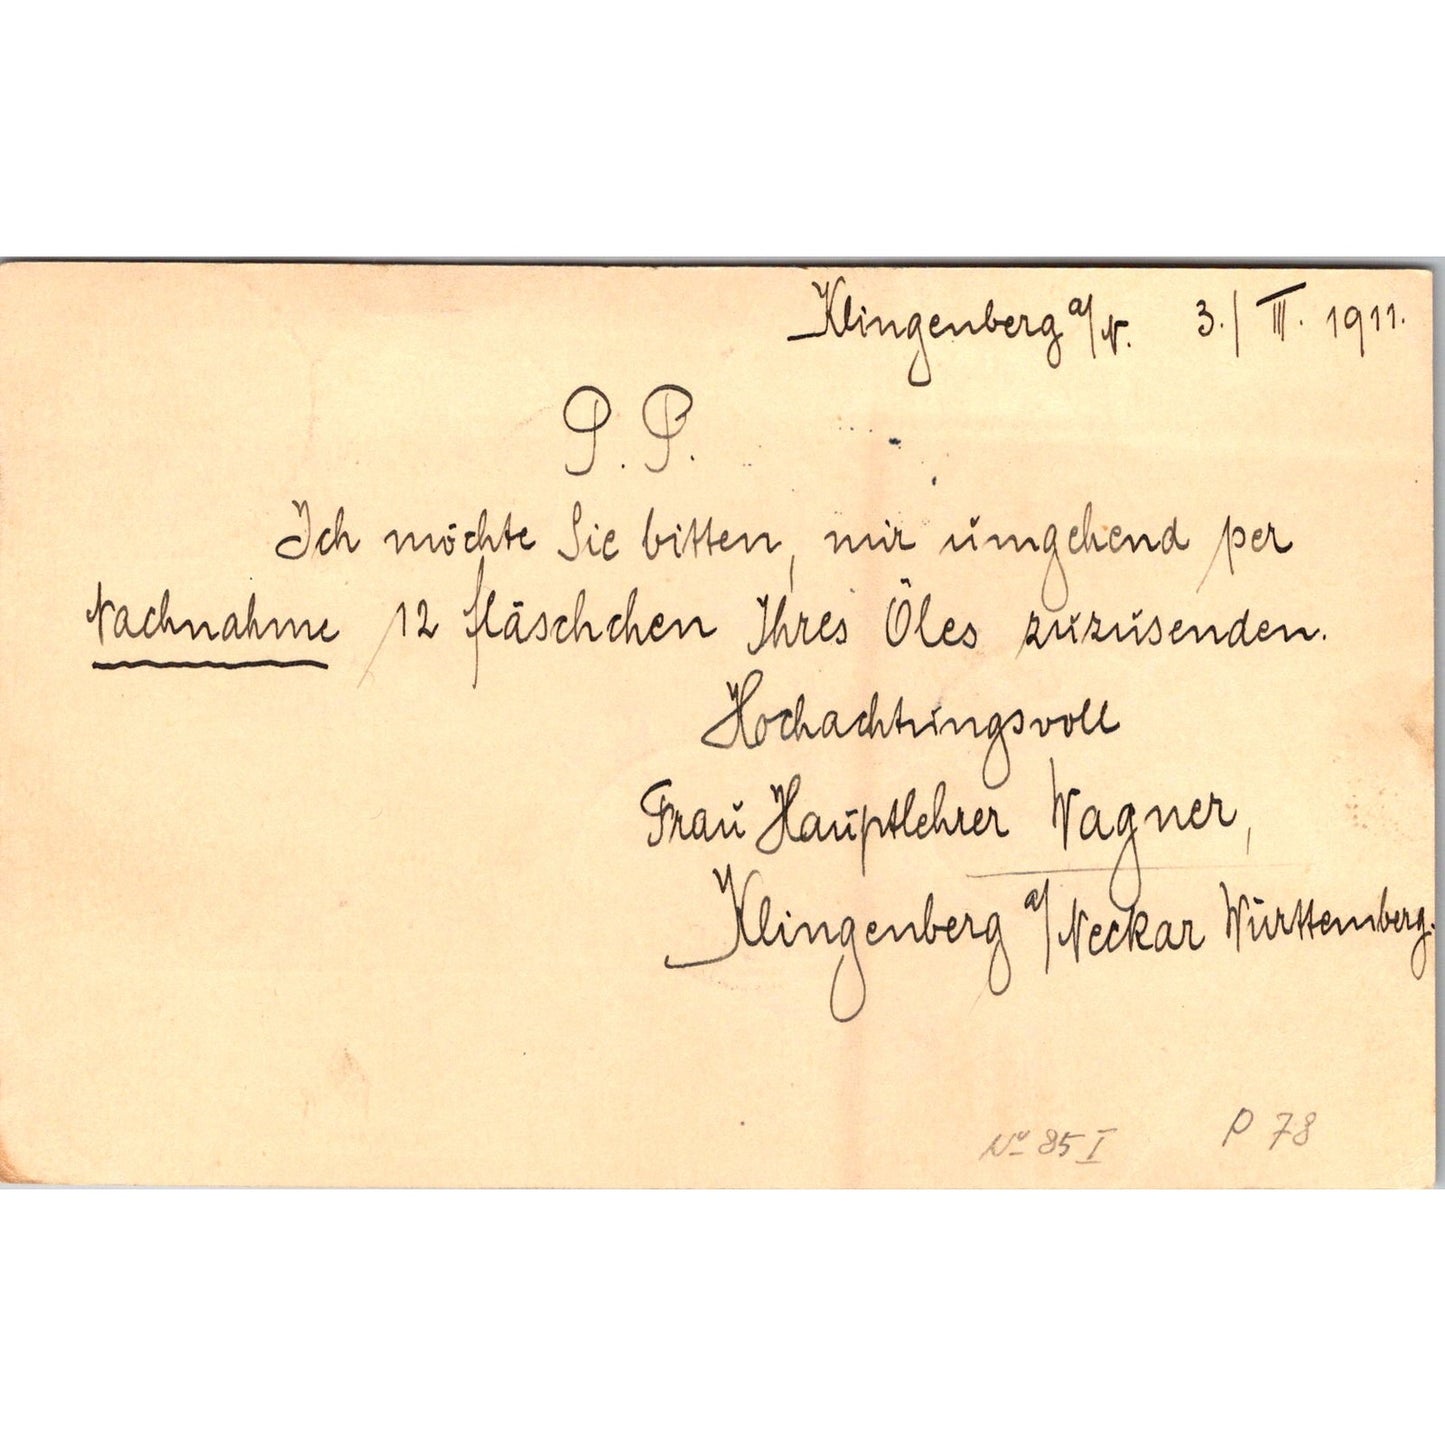 Klingenberg a/N. 3./III. 1911.
P. P.
Ich möchte Sie bitten, mir umgehend per
Nachnahme 12 Fläschchen Ihres Öles zuzusenden.
Hochachtungsvoll
Frau Hauptlehrer Wagner,
Klingenberg a/Neckar Württemberg.
No 85 I P 78